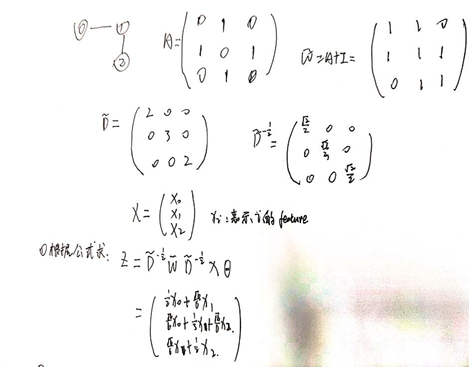 0 1 2
A = (0 1 0; 1 0 1; 0 1 0) W̃ = A+I = (1 1 0; 1 1 1; 0 1 1)
D̃ = (2 0 0; 0 3 0; 0 0 2) D̃^{-1/2} = (√2/2 0 0; 0 √3/3 0; 0 0 √2/2)
X = (X₀; X₁; X₂) Xᵢ:表示i的feature
①根据公式求: Z = D̃^{-1/2} W̃ D̃^{-1/2} X θ
= (½X₀+√6/6X₁; √6/6X₀+⅓X₁+√6/6X₂; √6/6X₁+½X₂)